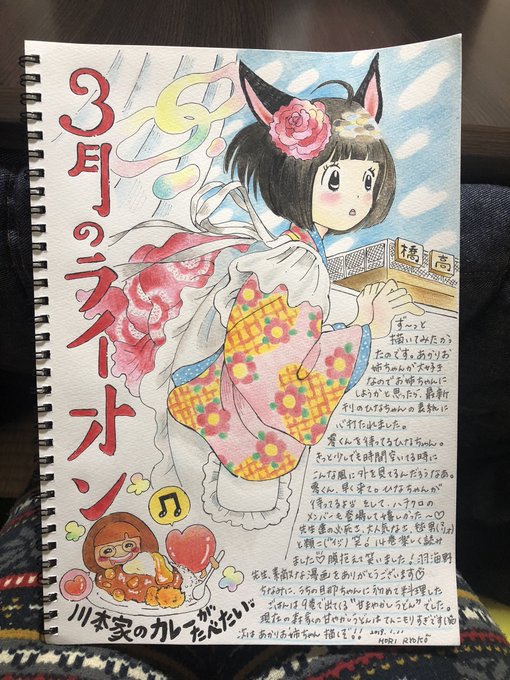 3月のライオン
橋
高
ず〜っと
描いてみたかっ
たのです。あかりお
姉ちゃんが大好き
なのでお姉ちゃんに
しようかと思ったら、最新
刊のひなちゃんの表紙に
心打たれました。
零くんを待ってるひなちゃん。
きっと少しでも時間空いてる時に
こんな風に外を見てるんだろうなあ。
零くん、早く来て。ひなちゃんが
待ってるよ!! そして、ハチクロの
メンバーも登場して嬉しかった〜♡
と 笑 小巻楽しく読み
ました♡腹抱えて笑いました!羽海野
先生、素敵な漫画をありがとうございます♡
ちなみに、うちの旦那ちゃんに初めて料理した
ごはんは9巻で出てくる"甘やかしうどん"でした。
現在の森家の甘やかしうどんはてんこモリすぎです(笑)
次はあかりお姉ちゃん描くぞ!! 2019.1.11
MORI RYOKO
川本家のカレーが
たべたい。